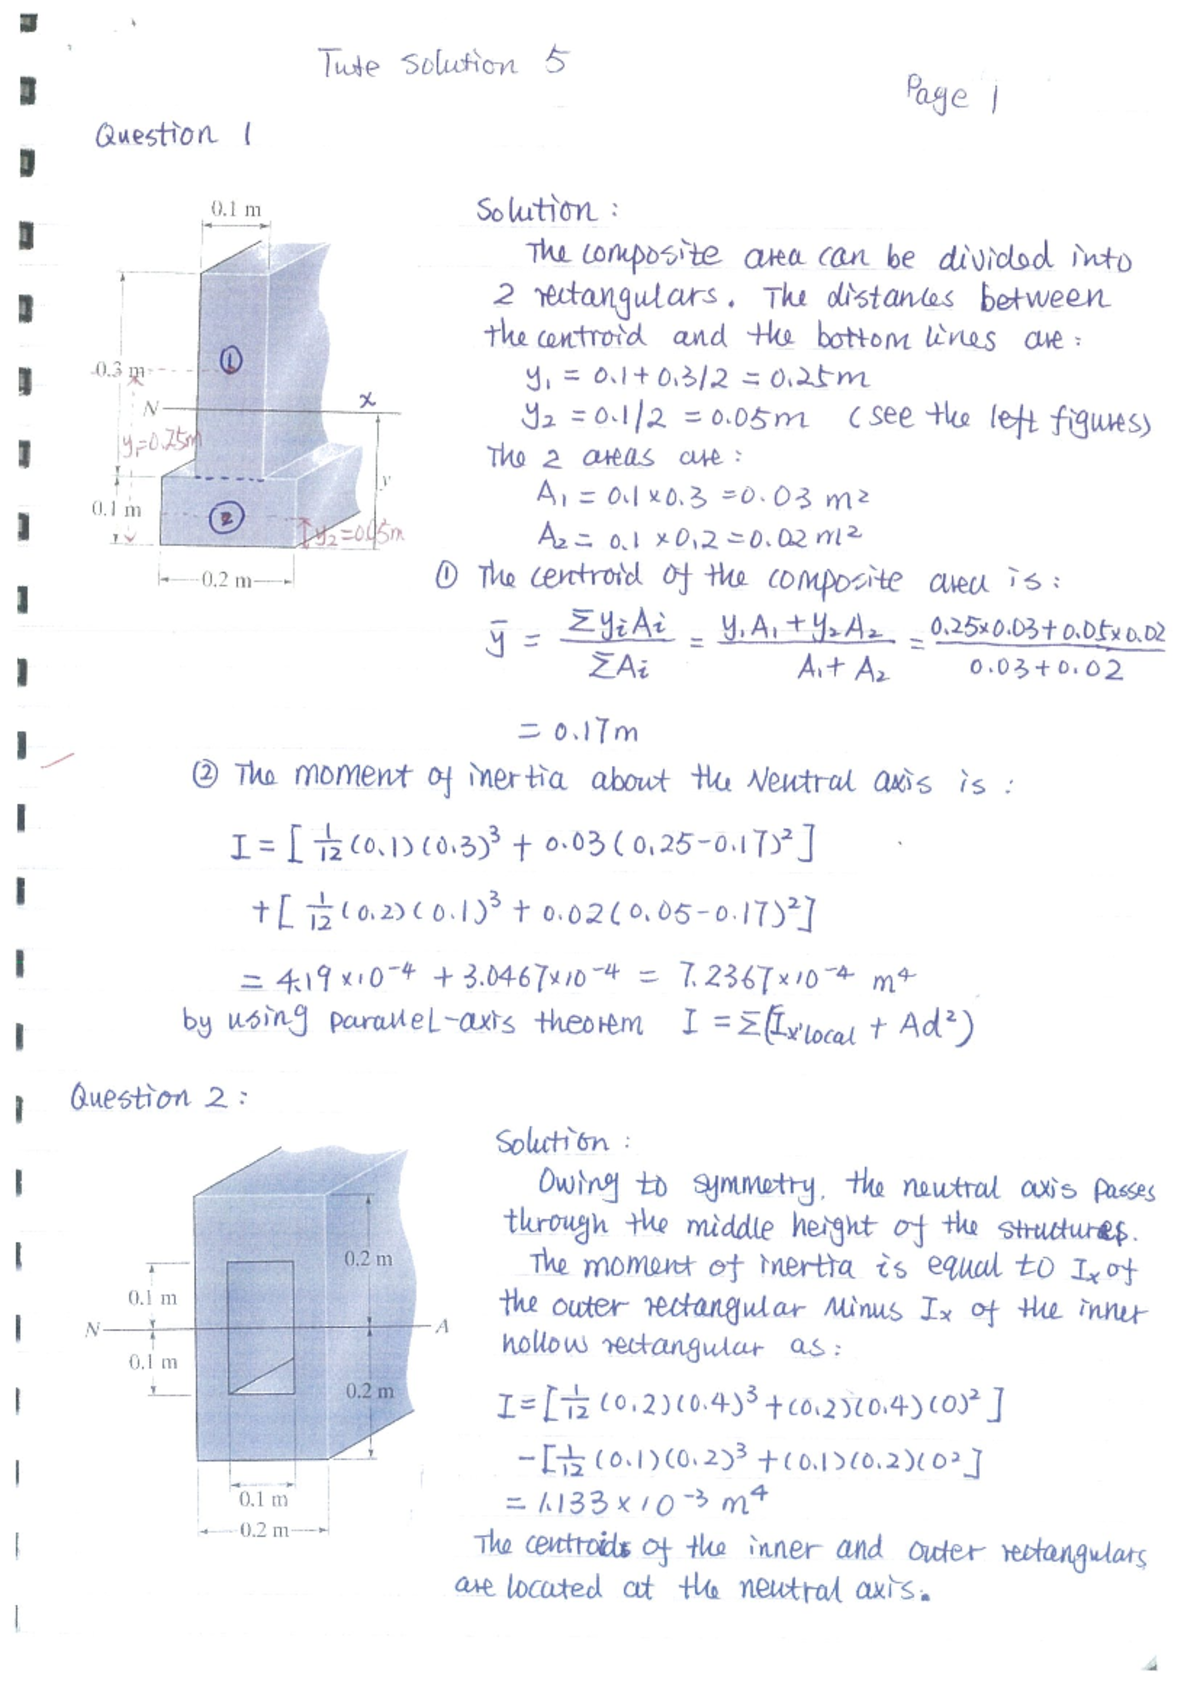 Tute Solution 5
Page 1
Question 1
0.1 m
0.3 m
N
x
y₁=0.25m
y
0.1 m
y₂=0.05m
0.2 m
①
②
Solution :
The composite area can be divided into
2 rectangulars. The distances between
the centroid and the bottom lines are :
y₁ = 0.1+0.3/2 = 0.25m
y₂ = 0.1/2 = 0.05m (see the left figures)
The 2 areas are :
A₁ = 0.1×0.3 =0.03 m²
A₂ = 0.1 ×0.2 =0.02 m²
① The centroid of the composite area is :
ȳ = ΣyᵢAᵢ / ΣAᵢ = y₁A₁+y₂A₂ / A₁+A₂ = 0.25×0.03+0.05×0.02 / 0.03+0.02
= 0.17m
② The moment of inertia about the Neutral axis is :
I = [ 1/12 (0.1)(0.3)³ + 0.03(0.25-0.17)² ]
+[ 1/12 (0.2)(0.1)³ + 0.02(0.05-0.17)²]
= 4.19×10⁻⁴ + 3.0467×10⁻⁴ = 7.2367×10⁻⁴ m⁴
by using parallel-axis theorem I = Σ(Iₓ'local + Ad²)
Question 2 :
0.2 m
0.1 m
N
A
0.1 m
0.2 m
0.1 m
0.2 m
Solution :
Owing to symmetry, the neutral axis passes
through the middle height of the structures.
The moment of inertia is equal to Iₓ of
the outer rectangular minus Iₓ of the inner
hollow rectangular as :
I=[ 1/12 (0.2)(0.4)³+(0.2)(0.4)(0)² ]
-[ 1/12 (0.1)(0.2)³ +(0.1)(0.2)(0²]
= 1.133×10⁻³ m⁴
The centroids of the inner and outer rectangulars
are located at the neutral axis.